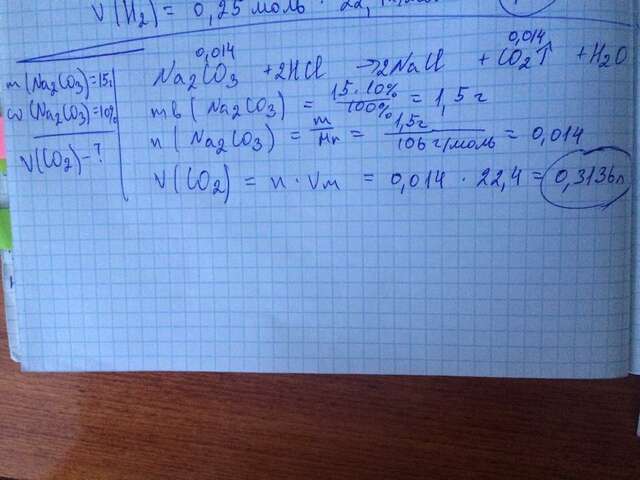 V(H₂) = 0,25 моль · 22,
m(Na₂CO₃)=15г
ω(Na₂CO₃)=10%
V(CO₂)-?
0,014 0,014
Na₂CO₃ +2HCl →2NaCl + CO₂↑ +H₂O
mв(Na₂CO₃) = 15·10%/100% = 1,5г
n(Na₂CO₃) = m/Mr = 1,5г/106 г/моль = 0,014
V(CO₂) = n·Vm = 0,014 · 22,4 = 0,3136л